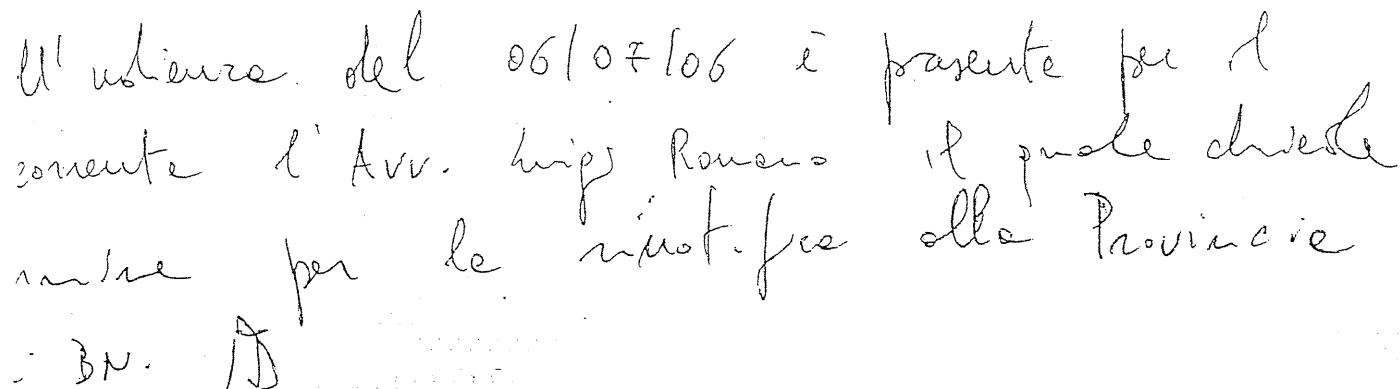 ll'udienza del 06/07/06 è presente per il
corrente l'Avv. Luigi Romano il quale chiede
per la rinotifica alla Provincia
BN.